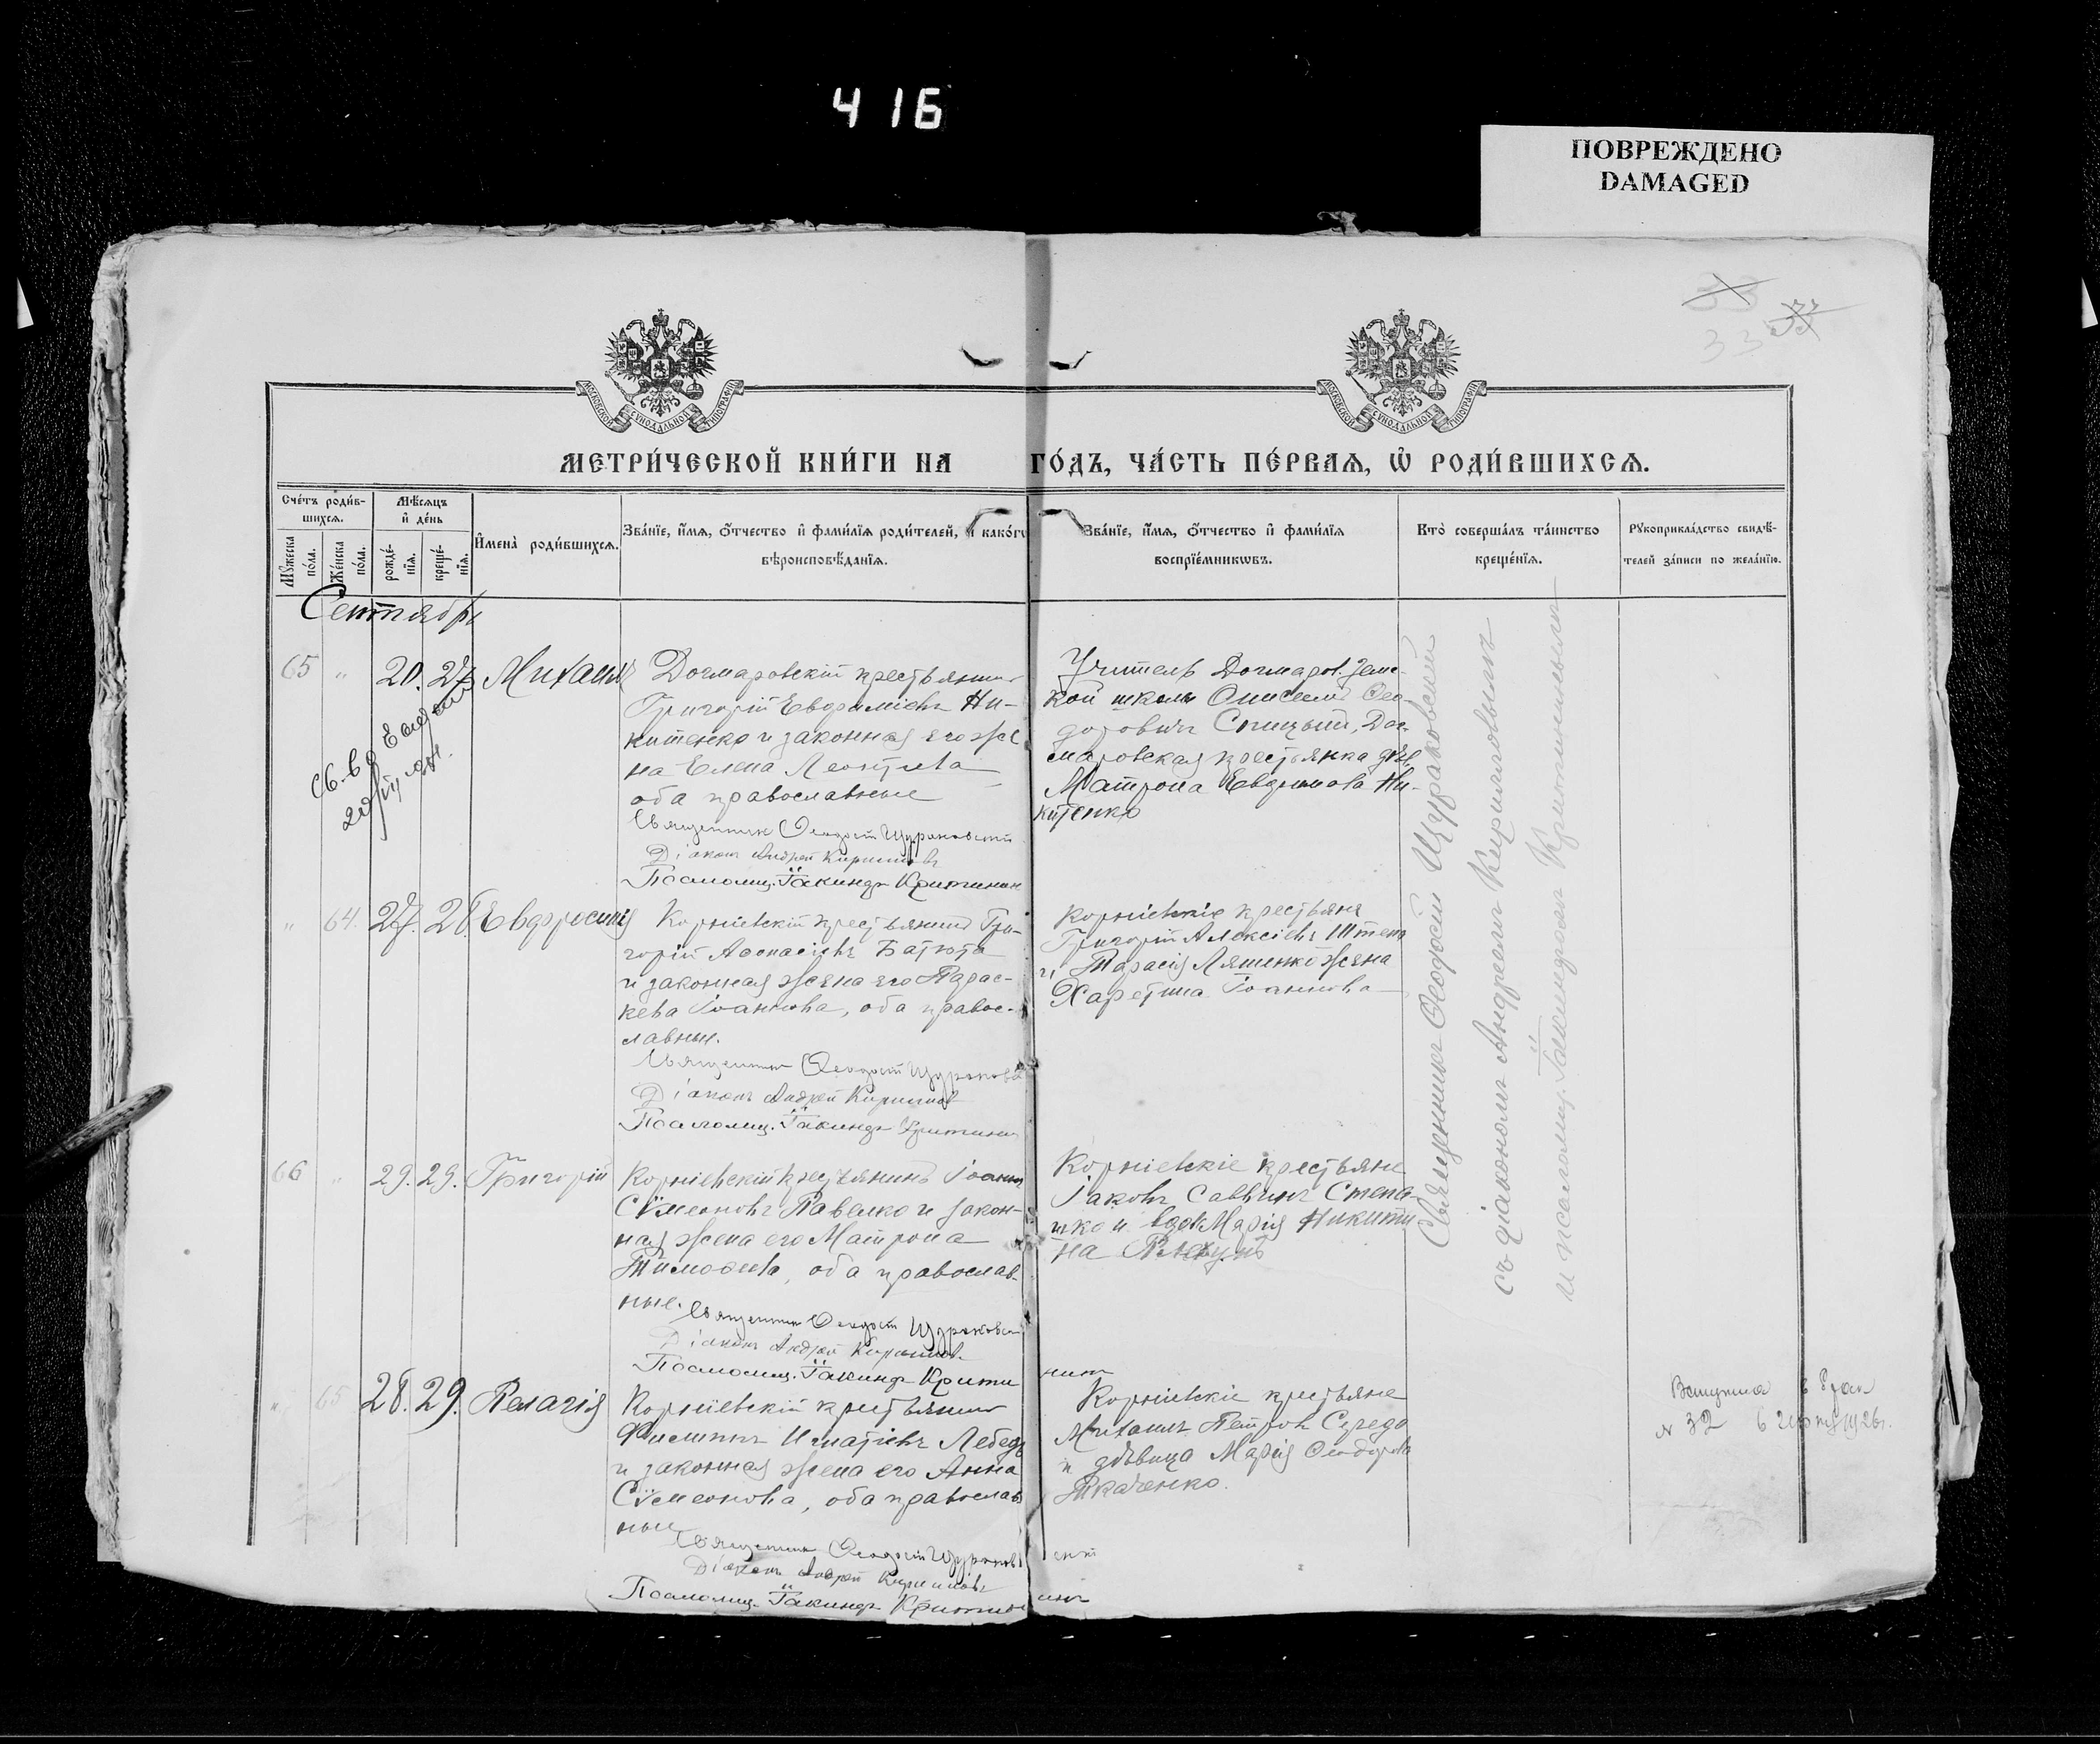 416
ПОВРЕЖДЕНО
DAMAGED
33
МОСКОВСКОЙ СѴНОДАЛЬНОЙ ТИПОГРАФІИ
МОСКОВСКОЙ СѴНОДАЛЬНОЙ ТИПОГРАФІИ
МЕТРИ́ЧЕСКОЙ КНИ́ГИ НА ГО́ДЪ, ЧА́СТЬ ПЕ́РВАѦ, Ѡ҆ РОДИ́ВШИХСѦ.
Сче́тъ роди́в-
шихсѧ.
Мꙋ́жеска
по́ла.
Же́нска
по́ла.
Мѣ́сѧцъ
и҆ де́нь
рожде́-
нїѧ.
креще́-
нїѧ.
И҆мена̀ роди́вшихсѧ.
Зва́нїе, и҆́мѧ, ѻ҆́тчество и҆ фами́лїѧ роди́телей, и҆ како́гѡ
вѣроисповѣ́данїѧ.
Зва́нїе, и҆́мѧ, ѻ҆́тчество и҆ фами́лїѧ
воспрїе́мникѡвъ.
Кто̀ соверша́лъ та́инство
креще́нїѧ.
Рꙋкоприкла́дство свидѣ́-
телей за́писи по жела́нїю.
Сентябрь
65 " 20. 27. Михаилъ
Догмаровскій крестьянинъ
Григорій Евфиміевъ Ни-
китенко и законная его же
на Елена Леонтіева
оба православные
Священникъ Ѳеодосій Щураковскій
Діаконъ Андрей Кирилловъ
Псаломщ. Іакинфъ Критинин
Учитель Догмаров. Земс-
кой школы Ѳео-
доровичъ Спицынъ, Дог-
маровская крестьянка дѣв.
Матрона Евфимова Ни-
китенко
Священникъ Ѳеодосій Щураковскій
съ діакономъ Андреемъ Кирилловымъ
и псаломщ. Іакинфомъ Критининымъ
" 64. 27. 28. Евфросинія
Корніевскій крестьянинъ Гри-
горій Аѳонасіевъ Батюта
и законная жена его Парас-
кева Іоаннова, оба правос-
лавные.
Священникъ Ѳеодосій Щураковс
Діаконъ Андрей Кирилловъ
Псаломщ. Іакинфъ Критинин
Корніевскіе крестьяне
Григорій Алексіевъ
и Тарасія Ляшенко жена
Харетина Іоаннова
66 " 29. 29. Григорій
Корніевскій крестьянинъ Іоаннъ
Сѵмеоновъ Павелко и закон-
ная жена его Матрона
Тимоѳеева, оба православ-
ные.
Священникъ Ѳеодосій Щураковс
Діаконъ Андрей Кирилловъ
Псаломщ. Іакинфъ Крити нинъ
Корніевскіе крестьяне
Іаковъ Саввинъ Степа-
шко и вдов Марія Никити-
на
" 65 28. 29. Пелагія
Корніевскій крестьянинъ
Филиппъ Игнатіевъ Лебедь
и законная жена его Анна
Сѵмеонова, оба православ
ные
Священникъ Ѳеодосій Щураковскій
Діаконъ Андрей Кирилловъ
Псаломщ. Іакинфъ Критининъ
Корніевскіе крестьяне
Михаилъ Петровъ Середа
и дѣвица Марія Ѳеодорова
Ткаченко.
Вступила в брак
N 32